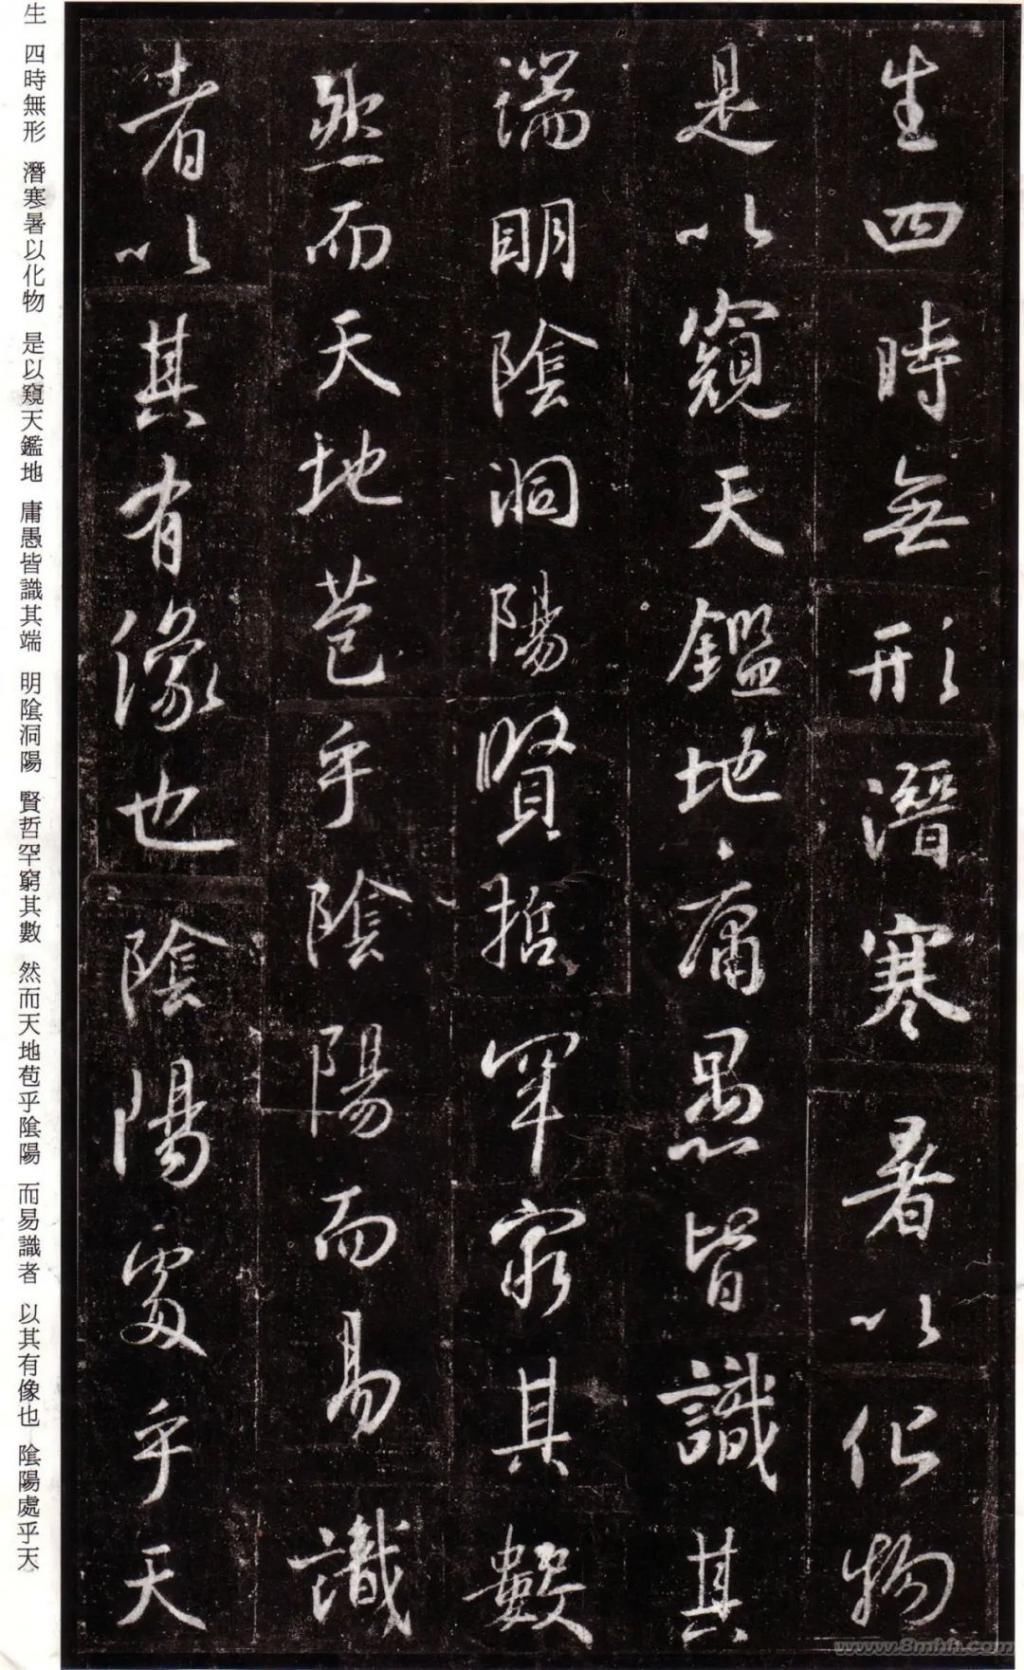 生四時無形潛寒暑以化物
是以窺天鑑地庸愚皆識其
端明陰洞陽賢哲罕窮其數
然而天地苞乎陰陽而易識
者以其有像也陰陽處乎天
生 四時無形 潛寒暑以化物 是以窺天鑑地 庸愚皆識其端 明陰洞陽 賢哲罕窮其數 然而天地苞乎陰陽 而易識者 以其有像也 陰陽處乎天
www.8mhh.com